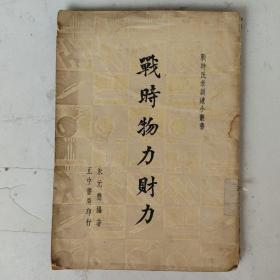 戰時民眾訓練小叢書
戰時物力財力
朱元懋編著
正中書局印行